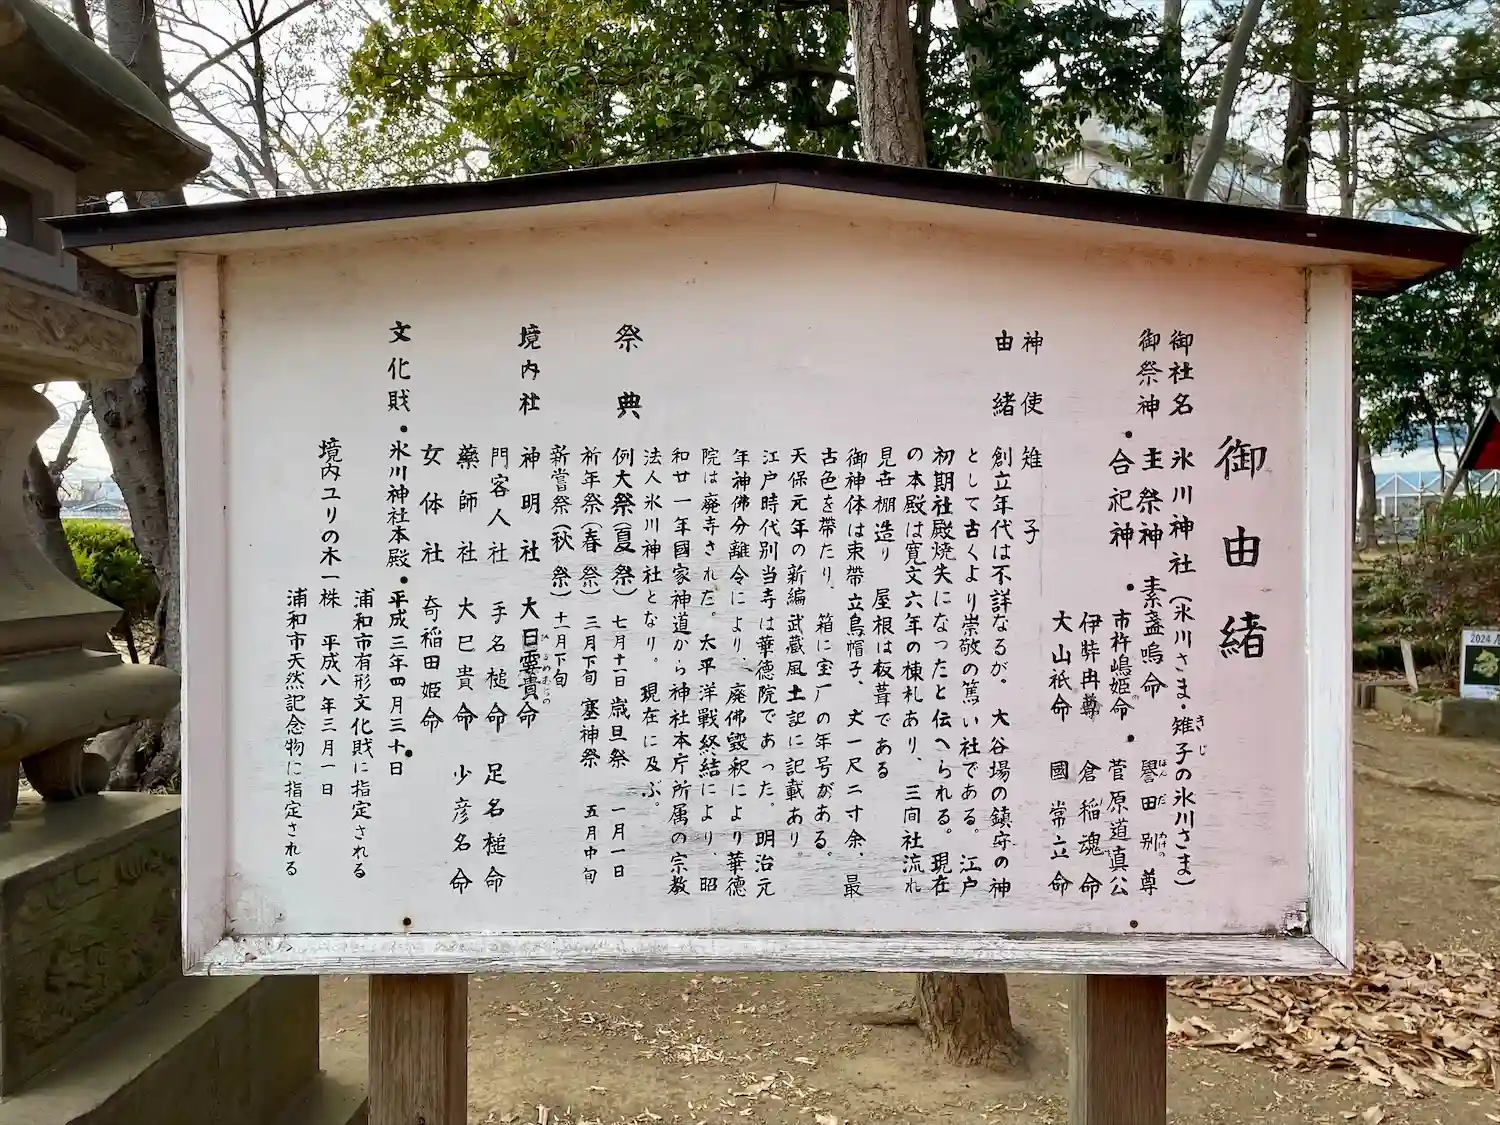 御由緒
御社名 氷川神社(氷川さま・雉子の氷川さま)
きじ
御祭神 主祭神 素盞嗚命 譽田別尊
ほんだわけの
・合祀神・市杵嶋姫命・菅原道真公
の
伊弉冉尊 倉稲魂命
大山祇命 國常立命
神使 雉子
由緒 創立年代は不詳なるが。大谷場の鎮守の神
として古くより崇敬の篤い社である。江戸
初期社殿焼失になったと伝へられる。現在
の本殿は寛文六年の棟札あり、三间社流れ
見世棚造り 屋根は板葺である
御神体は束帶立烏帽子、丈一尺二寸余、最
古色を帶たり、箱に宝厂の年号がある。
天保元年の新編武蔵風土記に記載あり。
江戸時代別当寺は華徳院であった。明治元
年神佛分離令により、廃佛毀釈により華德
院は廃寺された。太平洋戰終結により、昭
和廿一年國家神道から神社本庁所属の宗教
法人氷川神社となり。現在に及ぶ。
祭典 例大祭(夏祭)七月十一日 歳旦祭 一月一日
祈年祭(春祭)三月下旬 塞神祭 五月中旬
新嘗祭(秋祭)十一月下旬
境内社 神明社 大日孁貴命
ひるめむちの
門客人社 手名槌命 足名槌命
藥師社 大巳貴命 少彦名命
女体社 奇稲田姫命
文化財・氷川神社本殿・平成三年四月三十日
浦和市有形文化財に指定される
境内ユリの木一株 平成八年三月一日
浦和市天然記念物に指定される
2024